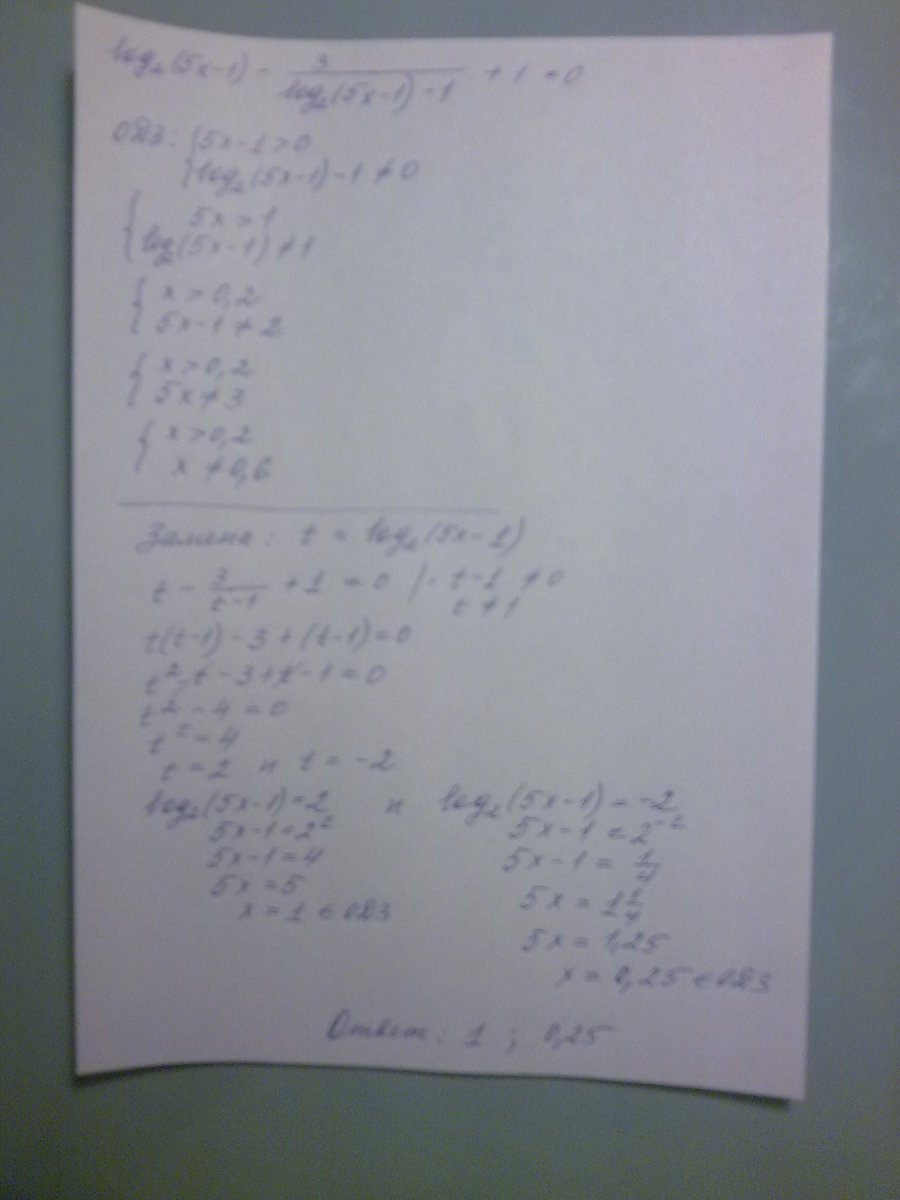 log₂(5x-1) - 3/(log₂(5x-1)-1) + 1 = 0
ОДЗ: { 5x-1>0
{ log₂(5x-1)-1≠0
{ 5x>1
{ log₂(5x-1)≠1
{ x>0,2
{ 5x-1≠2
{ x>0,2
{ 5x≠3
{ x>0,2
{ x≠0,6
Замена: t = log₂(5x-1)
t - 3/(t-1) + 1 = 0 | · t-1≠0
t≠1
t(t-1)-3+(t-1)=0
t²-t-3+t-1=0
t²-4=0
t²=4
t=2 и t=-2
log₂(5x-1)=2 и log₂(5x-1)=-2
5x-1=2² 5x-1=2⁻²
5x-1=4 5x-1=1/4
5x=5 5x=1 1/4
x=1 ∈ ОДЗ 5x=1,25
x=0,25 ∈ ОДЗ
Ответ: 1 ; 0,25